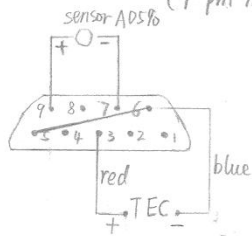 sensor AD590
+ -
9 8 7 6
5 4 3 2 1
red
blue
TEC
+ -